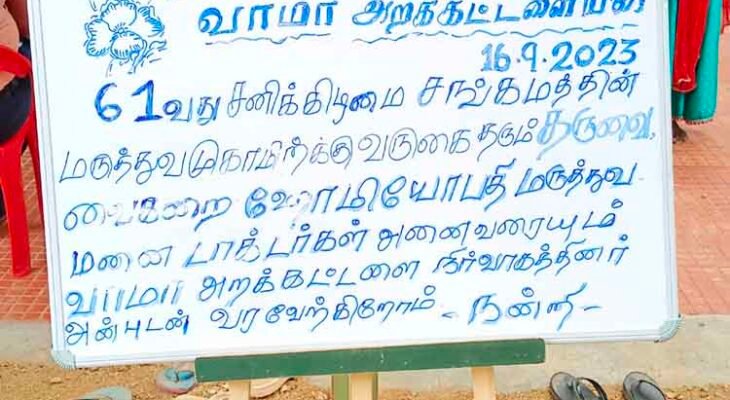 வாமா அறக்கட்டளையின்
16.9.2023
61வது சனிக்கிழமை சங்கமத்தின்
மருத்துவமுகாமிற்க்கு வருகை தரும் தருவை,
வைகறை ஹோமியோபதி மருத்துவ
மனை டாக்டர்கள் அனைவரையும்
வாமா அறக்கட்டளை நிர்வாகத்தினர்
அன்புடன் வரவேற்கிறோம். - நன்றி -